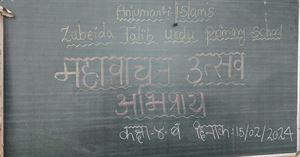 Anjuman-i-Islams
Zubeida Talib Urdu Primary School
महावाचन उत्सव
अभिप्राय
कक्षा-४ थ दिनांक:15/02/2024